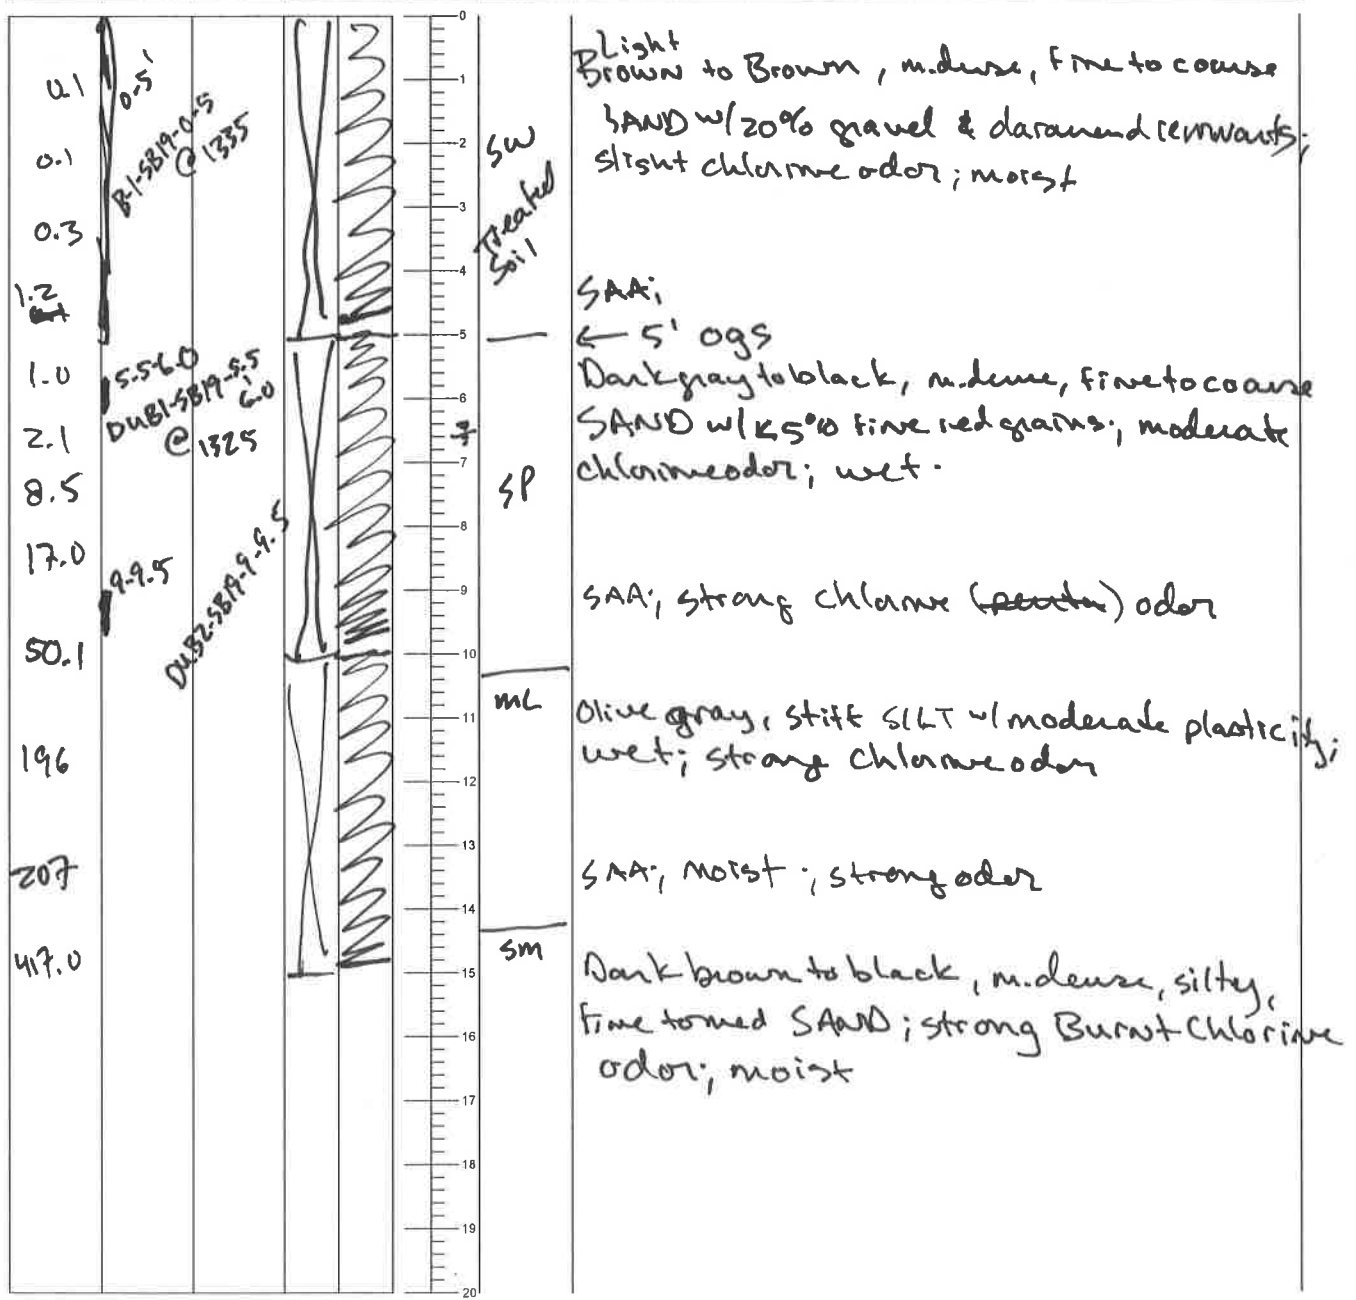 0.1
0.1
0.3
1.2
1.0
2.1
8.5
17.0
50.1
196
207
417.0
0-5'
B-1-SB19-0-5
@ 1335
5.5-6.0
DUB1-SB19-5.5
6.0
@ 1325
9-9.5
DUB2-SB19-9-9.5
0
1
2
3
4
5
6
7
8
9
10
11
12
13
14
15
16
17
18
19
20
SW
Treated
Soil
SP
ML
SM
Light
Brown to Brown, m.dense, fine to coarse
SAND w/20% gravel & daramend remnants;
slight chlorine odor; moist
SAA;
← 5' ogs
Dark gray to black, m.dense, fine to coarse
SAND w/<5% fine red grains; moderate
chlorine odor; wet.
SAA; strong chlorine (penta) odor
Olive gray, stiff SILT w/moderate plasticity;
wet; strong chlorine odor
SAA; moist; strong odor
Dark brown to black, m.dense, silty,
fine to med SAND; strong Burnt Chlorine
odor; moist